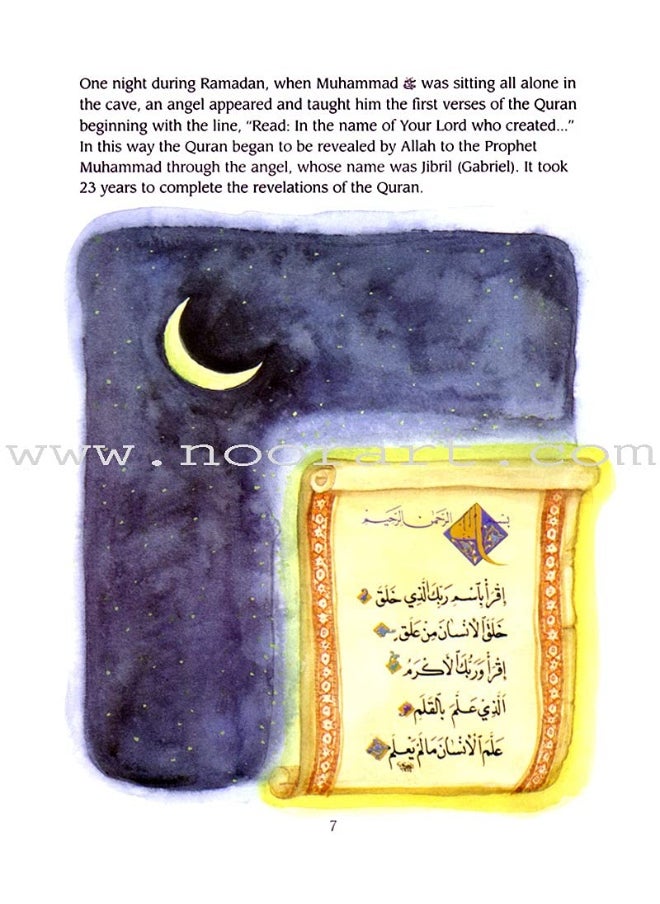 One night during Ramadan, when Muhammad ﷺ was sitting all alone in
the cave, an angel appeared and taught him the first verses of the Quran
beginning with the line, “Read: In the name of Your Lord who created...”
In this way the Quran began to be revealed by Allah to the Prophet
Muhammad through the angel, whose name was Jibril (Gabriel). It took
23 years to complete the revelations of the Quran.
www.noorart.com
بسم الله الرحمن الرحيم
اِقْرَأْ بِاسْمِ رَبِّكَ الَّذِي خَلَقَ
خَلَقَ الْاِنْسَانَ مِنْ عَلَقٍ
اِقْرَأْ وَرَبُّكَ الْاَكْرَمُ
اَلَّذِي عَلَّمَ بِالْقَلَمِ
عَلَّمَ الْاِنْسَانَ مَا لَمْ يَعْلَمْ
7